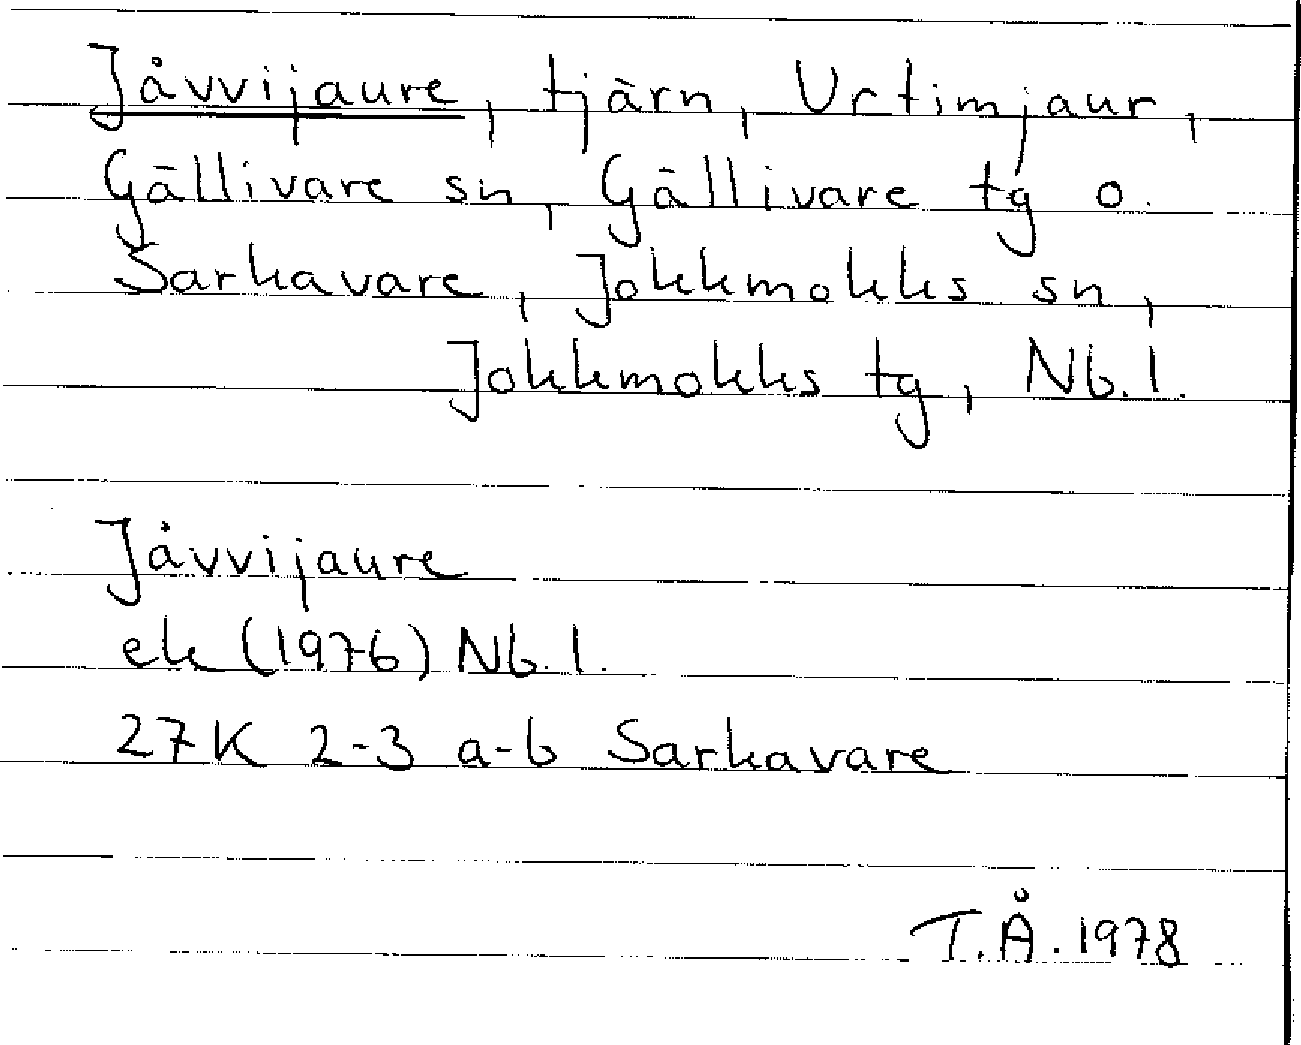 Jåvvijaure, tjärn, Urtimjaur,
Gällivare sn, Gällivare tg o.
Sarkavare, Jokkmokks sn,
Jokkmokks tg, Nb.l.
Jåvvijaure
ek (1976) Nb.l.
27K 2-3 a-b Sarkavare
T.Å. 1978